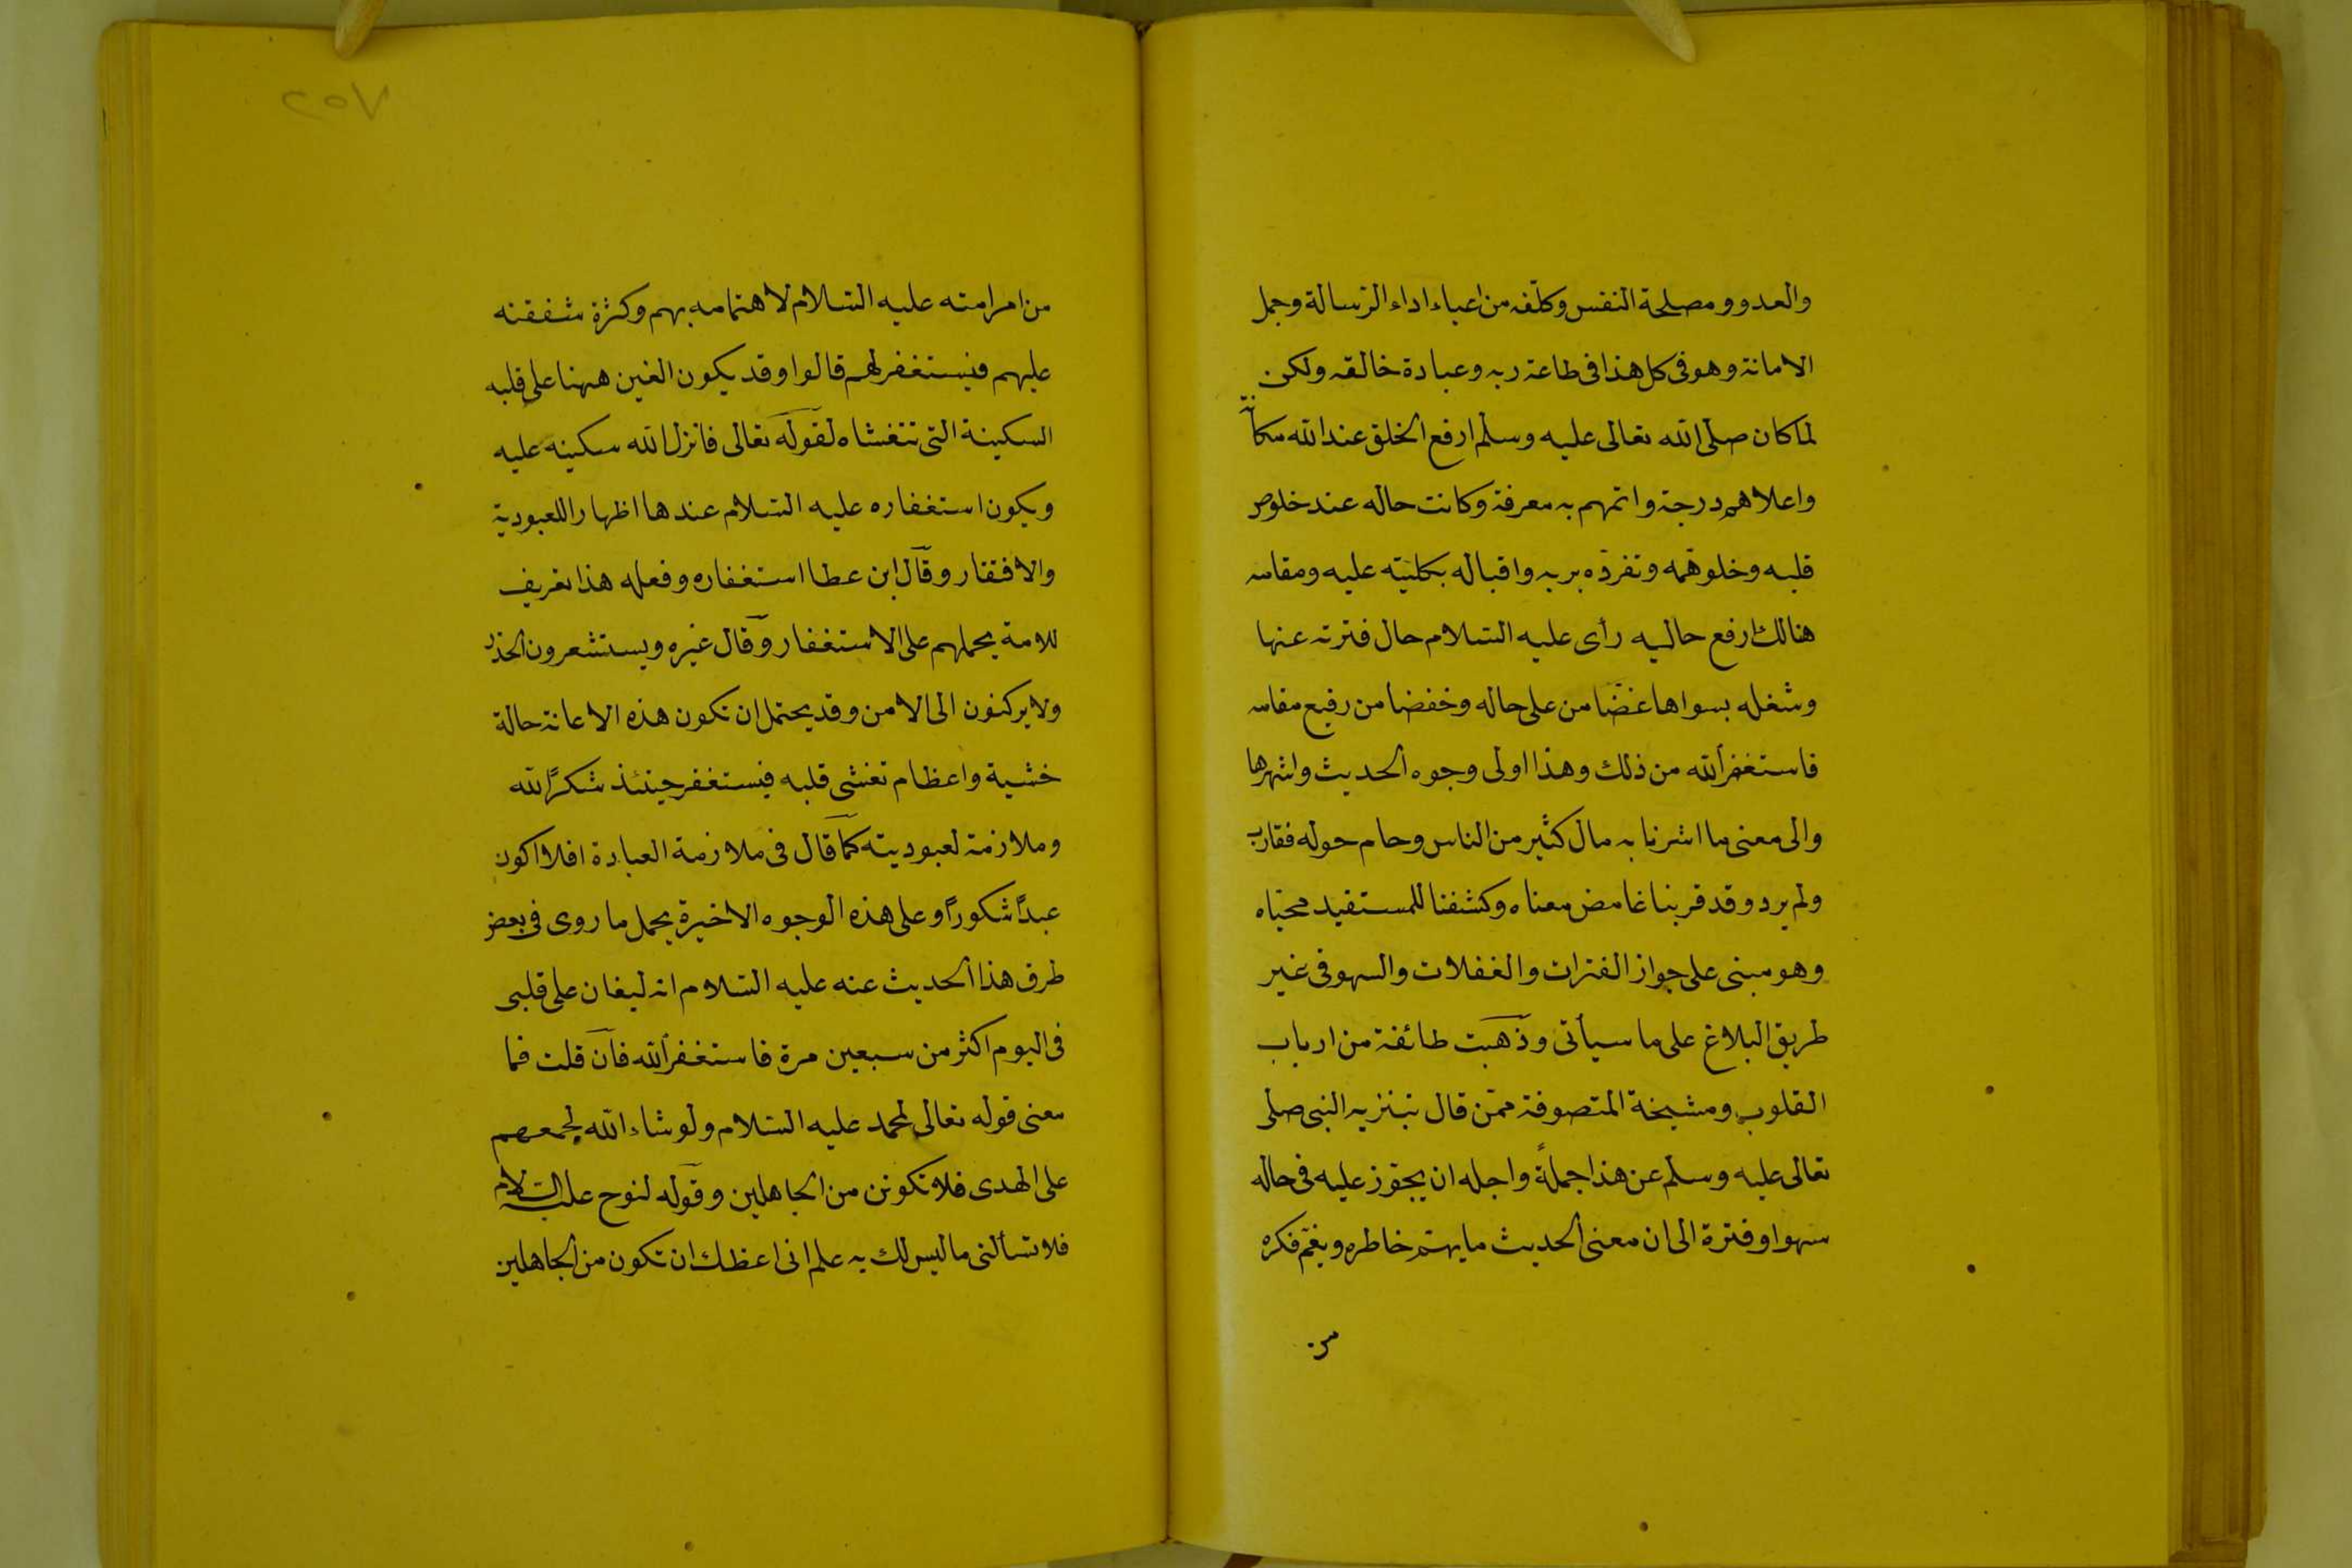 والعدو ومصلحة النفس وكلّفه من اعباء اداء الرسالة وحمل
الامانة وهو فى كل هذا فى طاعة ربه وعبادة خالقه ولكن
لما كان صلى الله تعالى عليه وسلم ارفع الخلق عند الله مكانة
واعلاهم درجة واتمهم به معرفة وكانت حاله عند خلوص
قلبه وخلو همّه وتفرّده بربه واقباله بكليّته عليه ومقامه
هنالك ارفع حاليه رأى عليه السلام حال فترته عنها
وشغله بسواها غضّا من على حاله وخفضا من رفيع مقامه
فاستغفر الله من ذلك وهذا اولى وجوه الحديث واشهرها
والى معنى ما اشرنا به مال كثير من الناس وحام حوله فقارب
ولم يرد وقد قربنا غامض معناه وكشفنا للمستفيد محيّاه
وهو مبنى على جواز الفترات والغفلات والسهو فى غير
طريق البلاغ على ما سيأتى وذهبت طائفة من ارباب
القلوب ومشيخة المتصوفة ممّن قال بتنزيه النبى صلى
تعالى عليه وسلم عن هذا جملةً واجله ان يجوّز عليه فى حاله
سهوا وفترة الى ان معنى الحديث ما يهتم خاطره ويغم فكره
من
٢٥٧
من امر امته عليه السلام لاهتمامه بهم وكثرة شفقته
عليهم فيستغفر لهم قالوا وقد يكون الغين ههنا على قلبه
السكينة التى تتغشاه لقوله تعالى فانزل الله سكينه عليه
ويكون استغفاره عليه السلام عندها اظهارا للعبودية
والافتقار وقال ابن عطا استغفاره وفعله هذا تعريف
للامة يحملهم على الاستغفار وقال غيره ويستشعرون الحذر
ولا يركنون الى الامن وقد يحتمل ان تكون هذه الاعانة حالة
خشية واعظام تغشى قلبه فيستغفر حينئذ شكرًا لله
وملازمة لعبوديته كما قال فى ملازمة العبادة افلا اكون
عبدًا شكورًا وعلى هذه الوجوه الاخيرة يحمل ما روى فى بعض
طرق هذا الحديث عنه عليه السلام انه ليغان على قلبى
فى اليوم اكثر من سبعين مرة فاستغفر الله فان قلت فما
معنى قوله تعالى لمحمد عليه السلام ولو شاء الله لجمعهم
على الهدى فلا تكونن من الجاهلين وقوله لنوح عليه السلام
فلا تسألنى ما ليس لك به علم انى اعظك ان تكون من الجاهلين